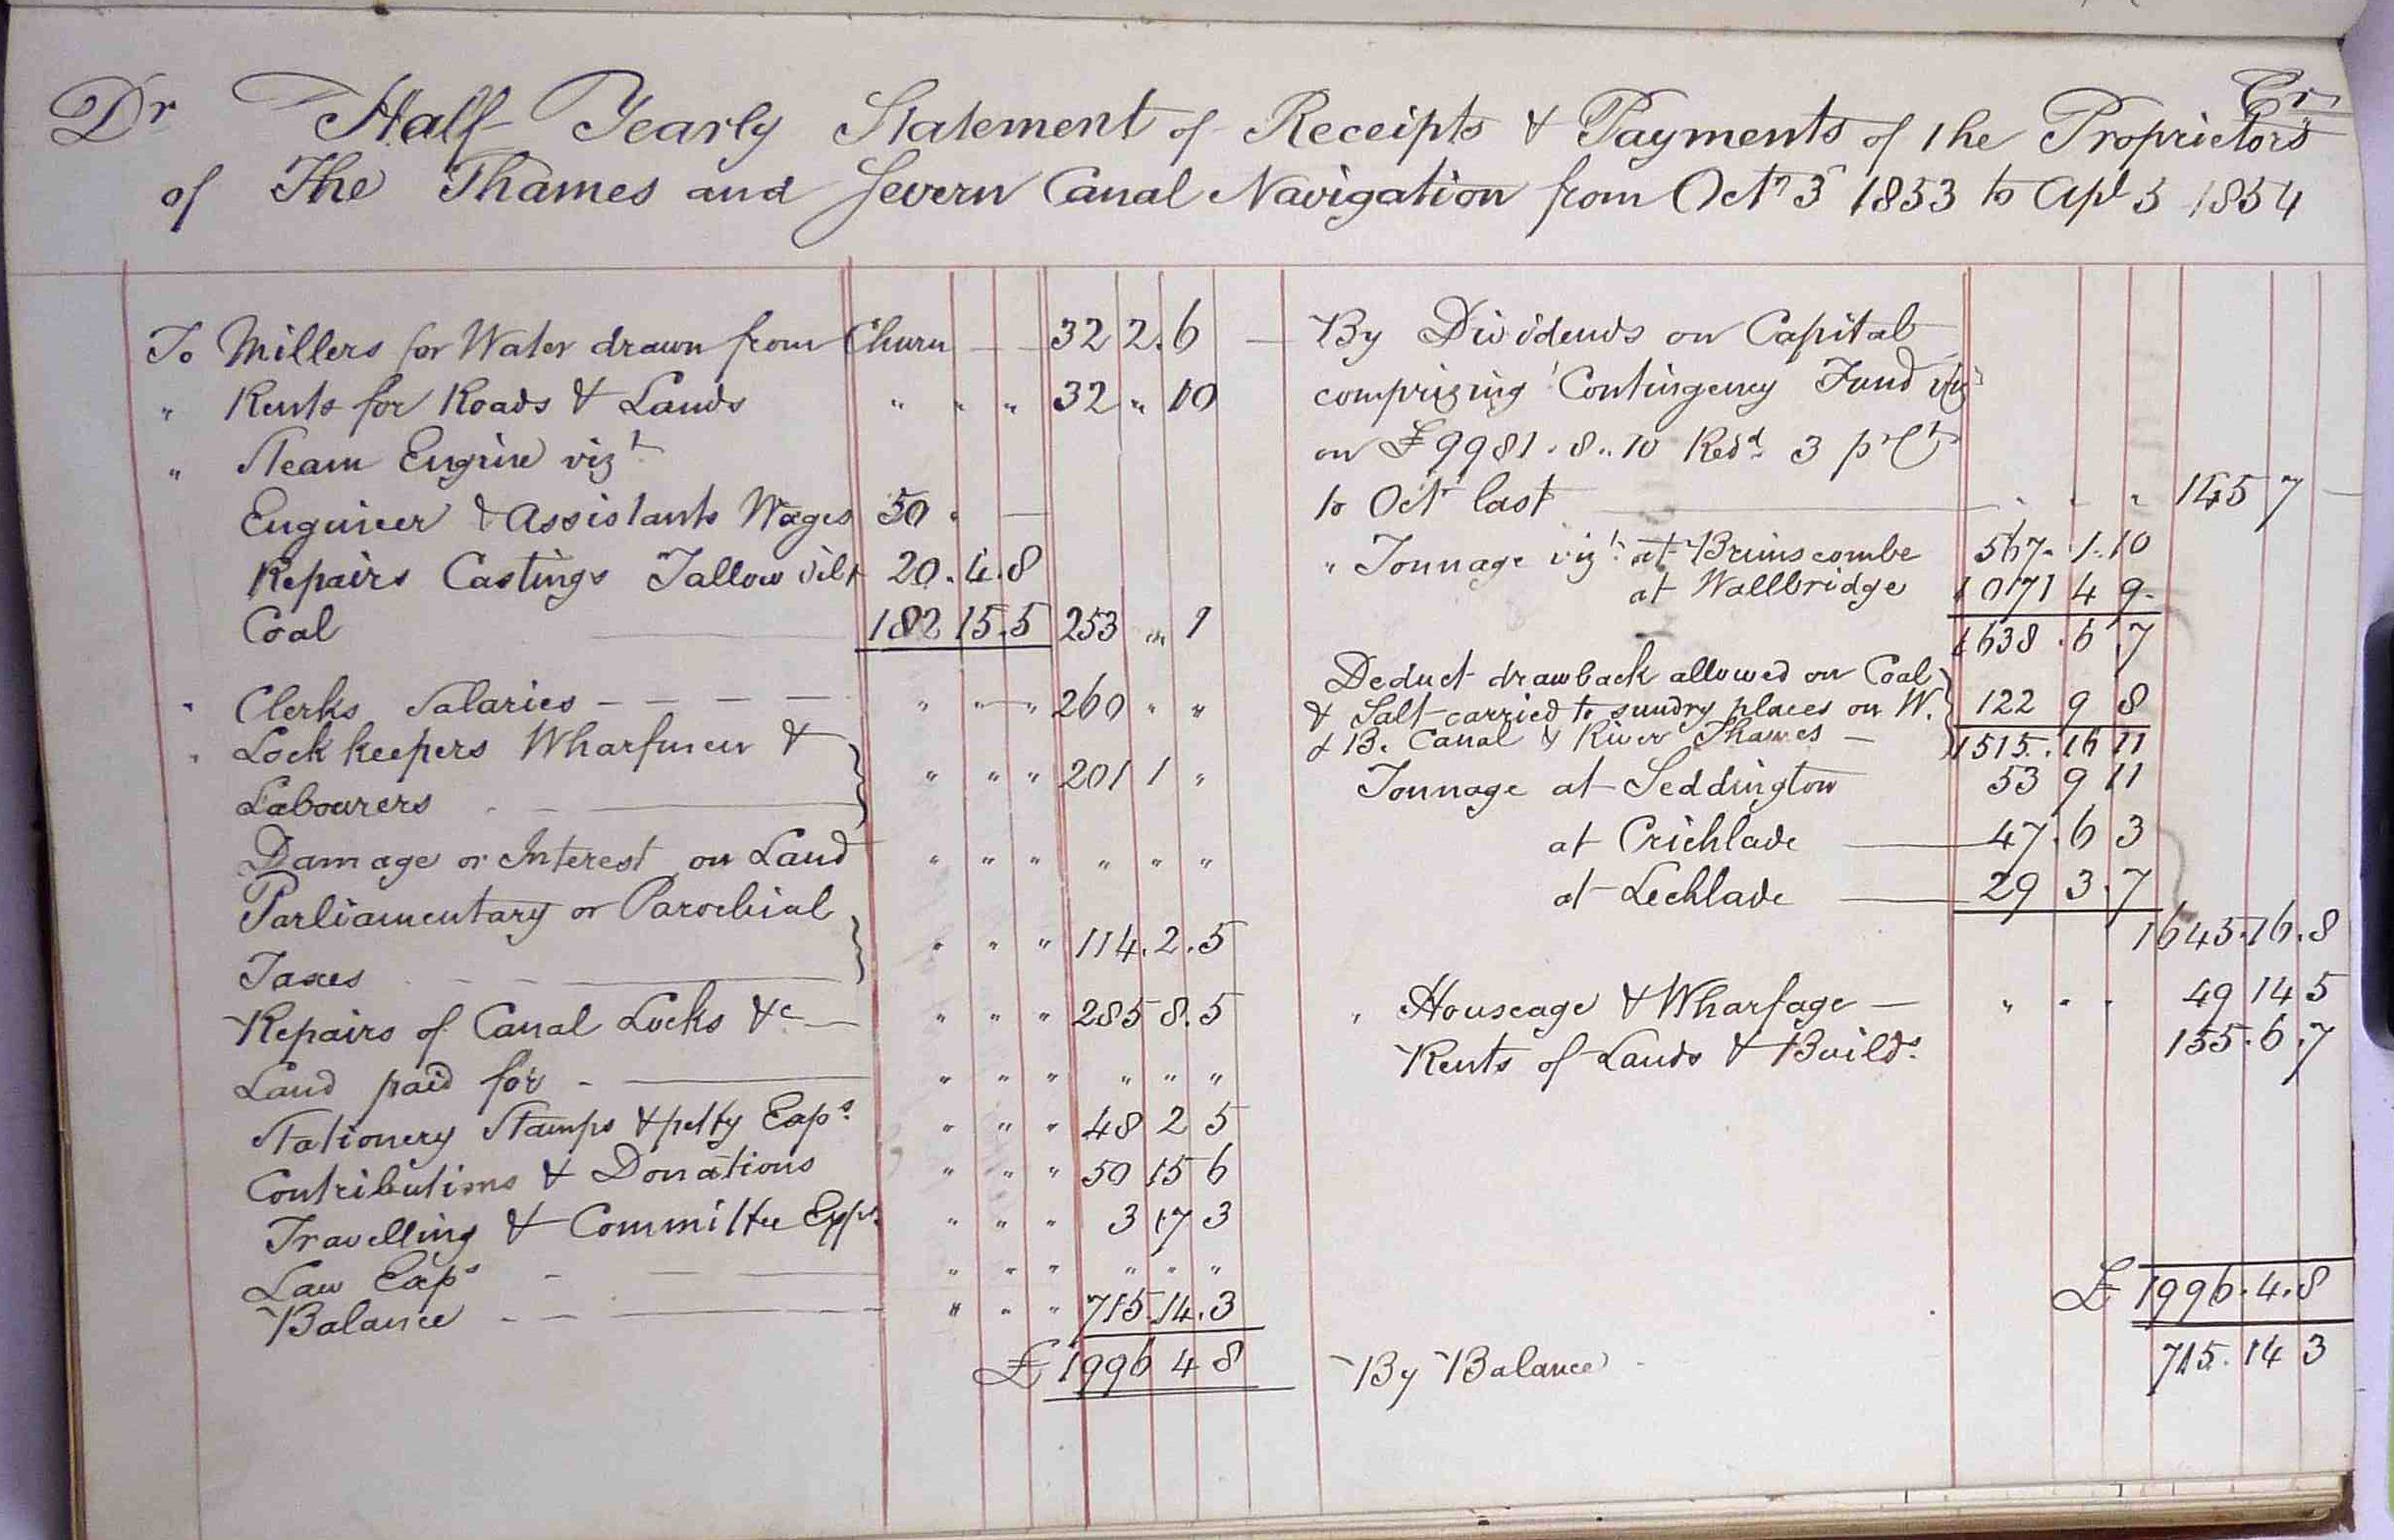 Dr Half Yearly Statement of Receipts & Payments of the Proprietors Cr
of The Thames and Severn Canal Navigation from Octr 5 1853 to Apl 5 1854
To Millers for Water drawn from Churn — — 32 2. 6 —
" Rents for Roads & Lands " " " 32 " 10
" Steam Engine vizt
Engineer & Assistants Wages 50 . —
Repairs Castings Tallow oil & 20. 4. 8
Coal 182 15. 5 253 " 1
" Clerks Salaries - - - - " " " 260 " "
" Lock keepers Wharfmen &
Labourers " " " 201 1 "
Damage or Interest on Land " " " " " "
Parliamentary or Parochial
Taxes " " " 114. 2. 5
Repairs of Canal Locks &c — " " " 285 8. 5
Land paid for - " " " " " "
Stationery Stamps & petty Exps. " " " 48 2 5
Contributions & Donations " " " 50 15 6
Travelling & Committee Exps. " " " 3 17 3
Law Exps - " " " " " "
Balance - - " " " 715. 14. 3
£ 1996 4 8
By Dividends on Capital
comprizing Contingency Fund vizt
on £9981. 8.. 10 Redd 3 pr Ct
to Octr last " " " 145 7 —
" Tonnage vizt at Brimscombe 567. 1. 10
at Wallbridge 1071 4 9.
1638 . 6 7
Deduct drawback allowed on Coal
& Salt carried to sundry places on W. 122 9 8
& B. Canal & River Thames — 1515. 16 11
Tonnage at Seddington 53 9 11
at Crichlade 47. 6 3
at Lechlade 29 3. 7
1645. 16. 8
" Houseage & Wharfage — " " " 49 14 5
Rents of Lands & Builds. 155. 6. 7
£ 1996. 4. 8
By Balance 715. 14 3